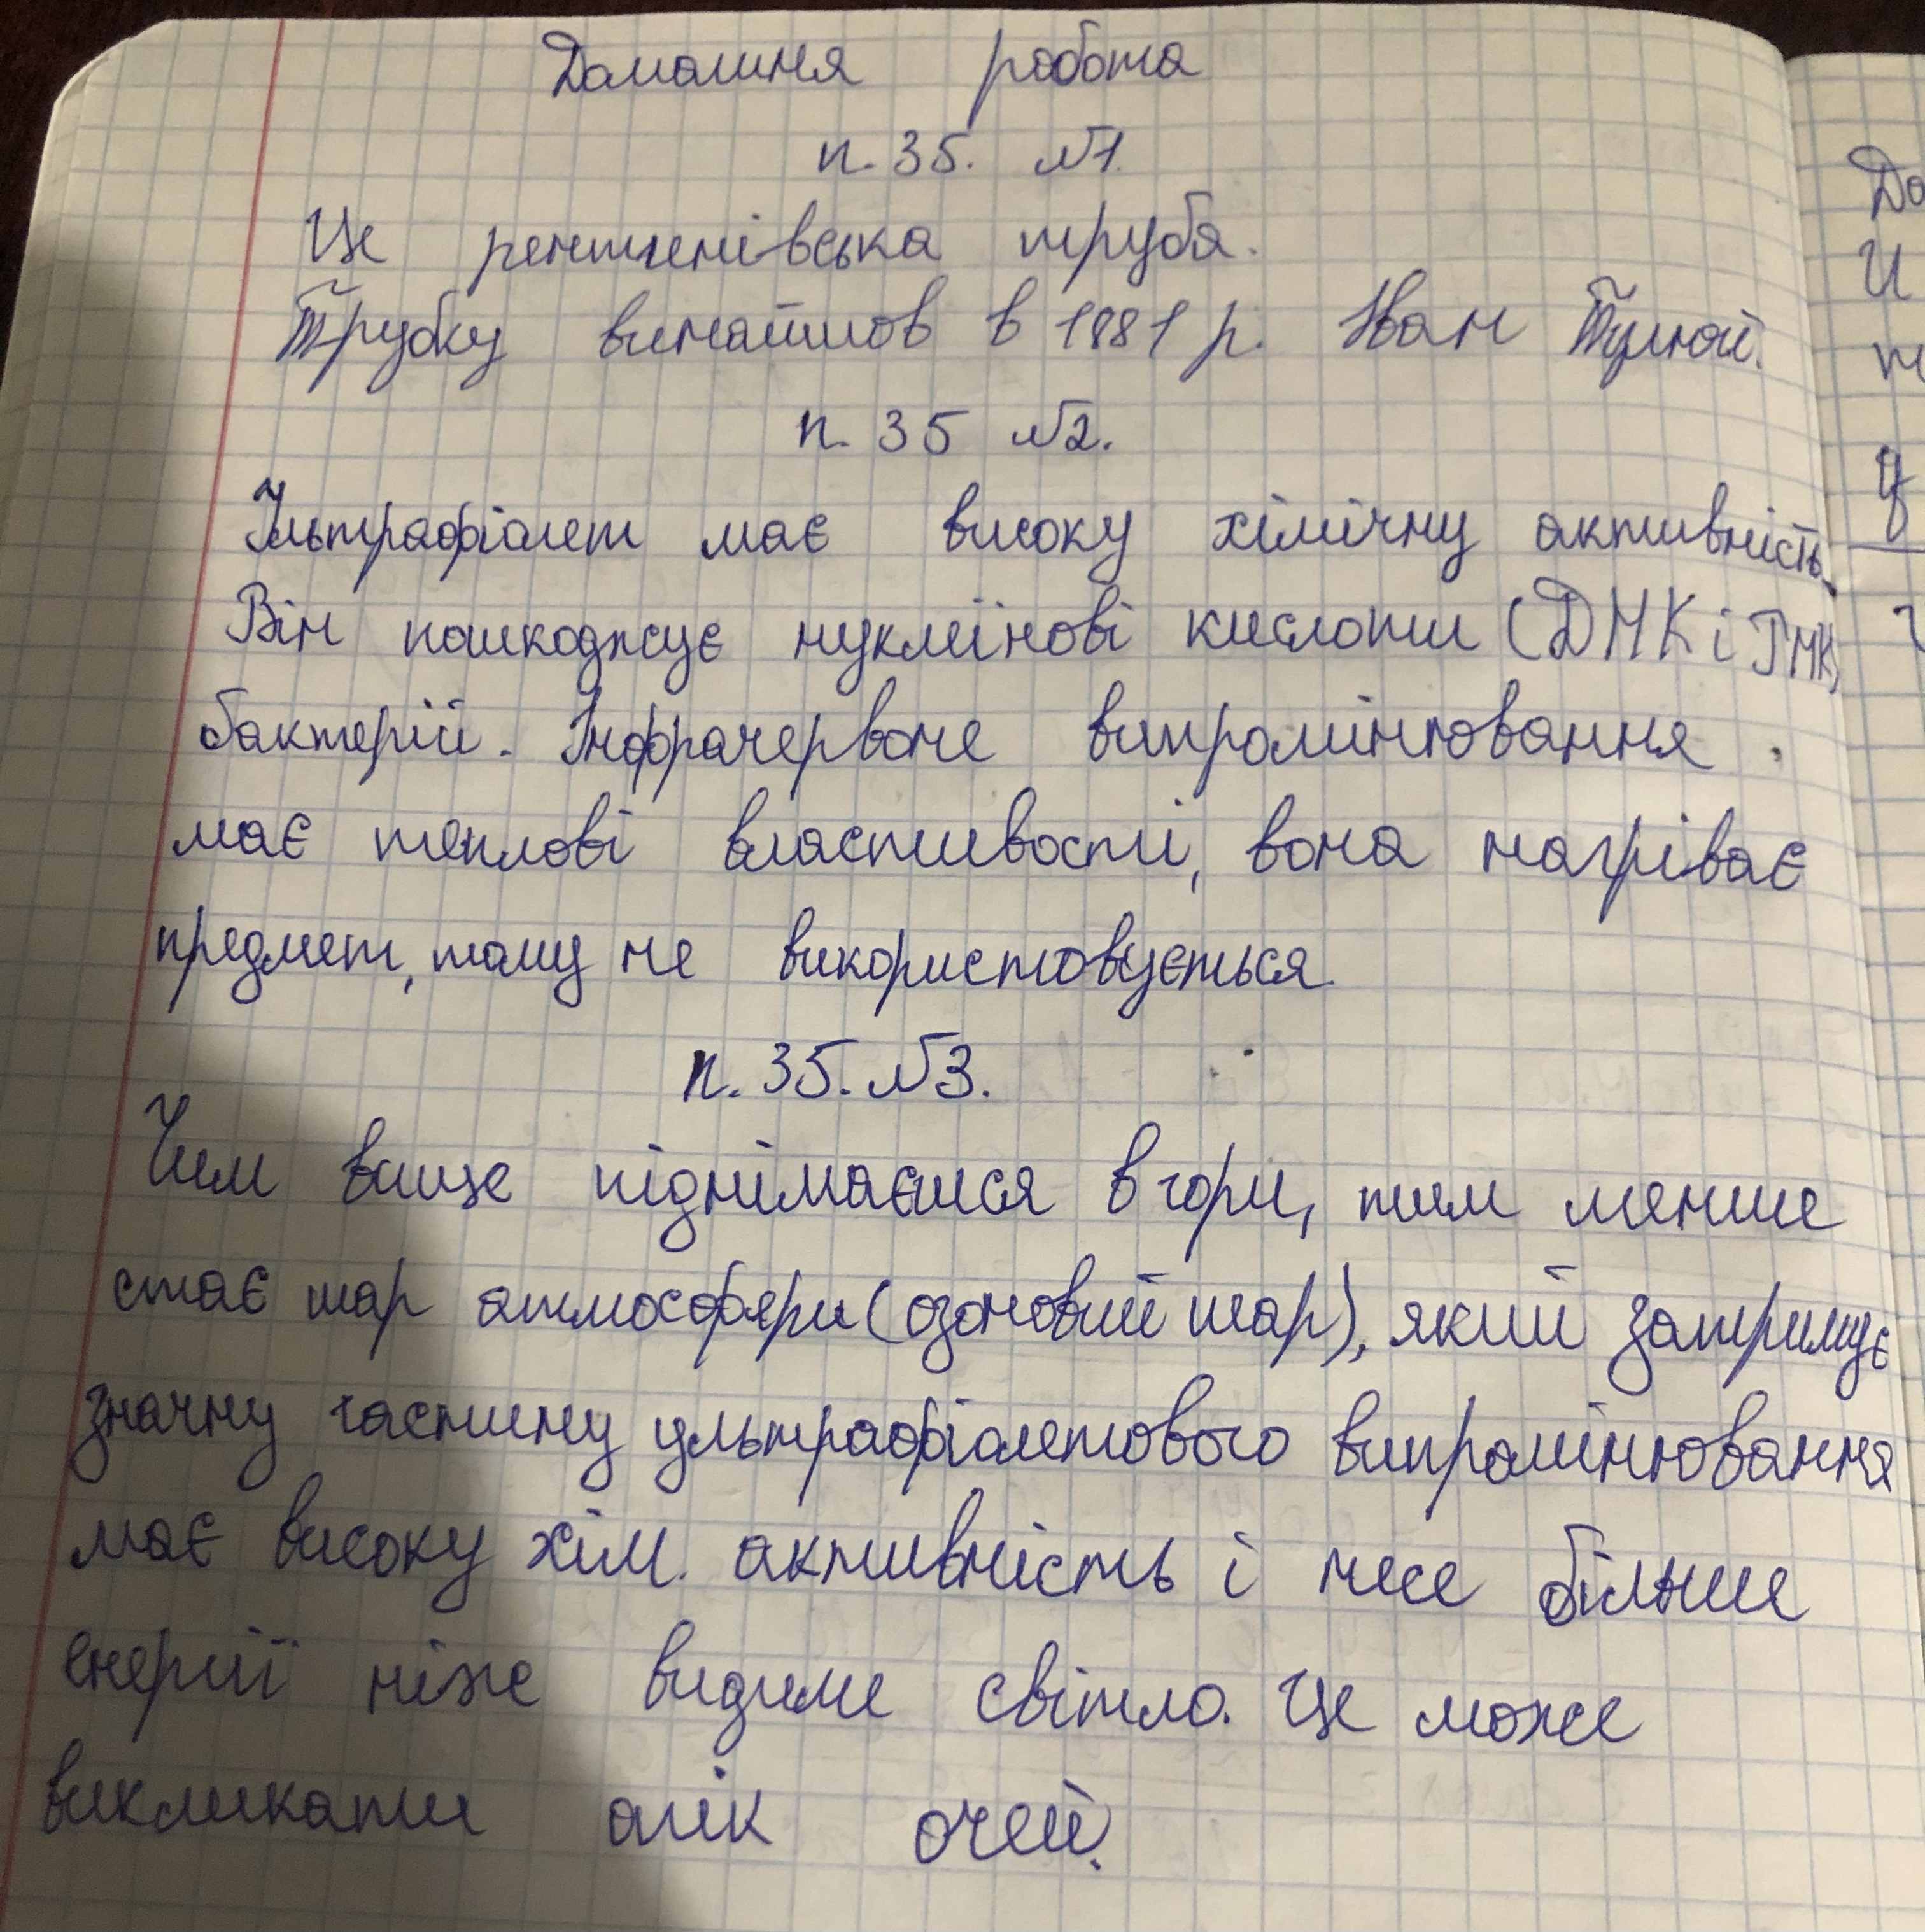 Домашня робота
п. 35. №1.
Це рентгенівська труба.
Трубку винайшов в 1881 р. Іван Пулюй.
п. 35 №2.
Ультрафіолет має високу хімічну активність.
Він пошкоджує нуклеїнові кислоти (ДНК і РНК)
бактерій. Інфрачервоне випромінювання
має теплові властивості, вона нагріває
предмет, тому не використовується.
п. 35. №3.
Чим вище піднімаєшся в гори, тим менше
стає шар атмосфери (озоновий шар), який затримує
значну частину ультрафіолетового випромінювання
має високу хім. активність і несе більше
енергії ніж видиме світло. Це може
викликати опік очей.